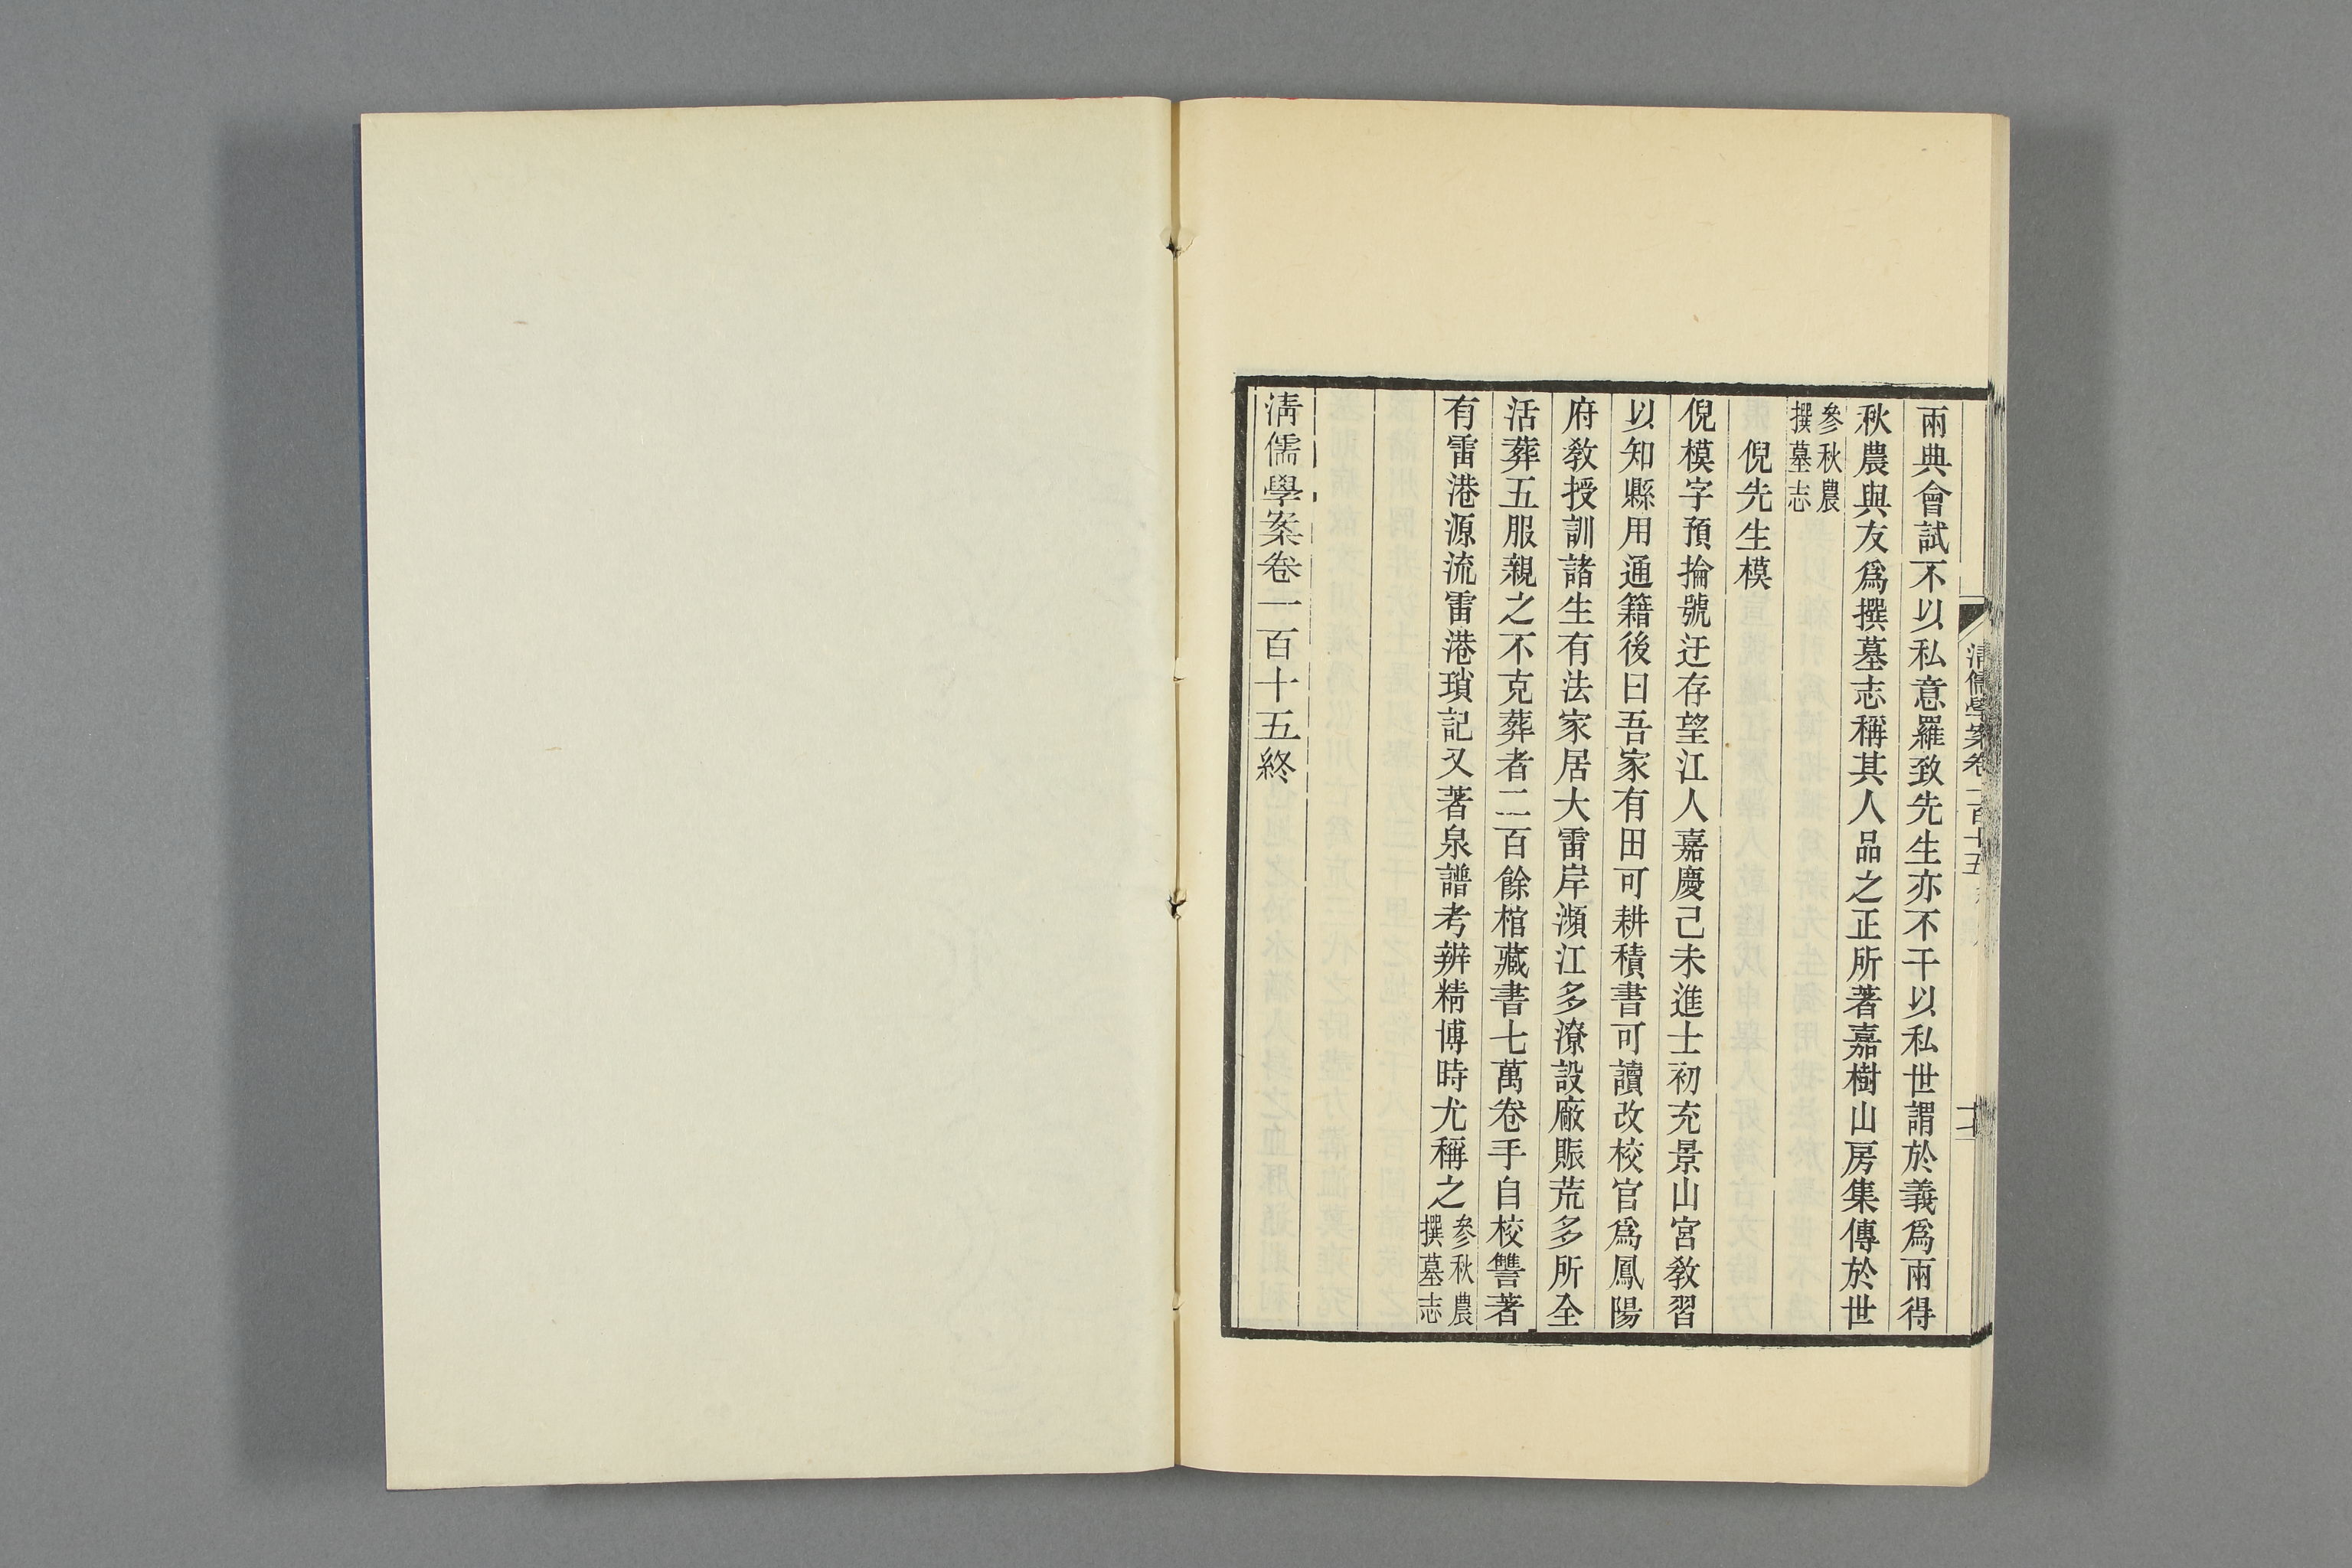 兩典會試不以私意羅致先生亦不干以私世謂於義爲兩得
秋農與友爲撰墓志稱其人品之正所著嘉樹山房集傳於世
參秋農
撰墓志
倪先生模
倪模字預掄號迂存望江人嘉慶己未進士初充景山宮敎習
以知縣用通籍後曰吾家有田可耕積書可讀改校官爲鳳陽
府敎授訓諸生有法家居大雷岸瀕江多潦設廠賑荒多所全
活葬五服親之不克葬者二百餘棺藏書七萬卷手自校讐著
有雷港源流雷港瑣記又著泉譜考辨精博時尤稱之
參秋農
撰墓志
淸儒學案卷一百十五終
淸儒學案卷一百十五